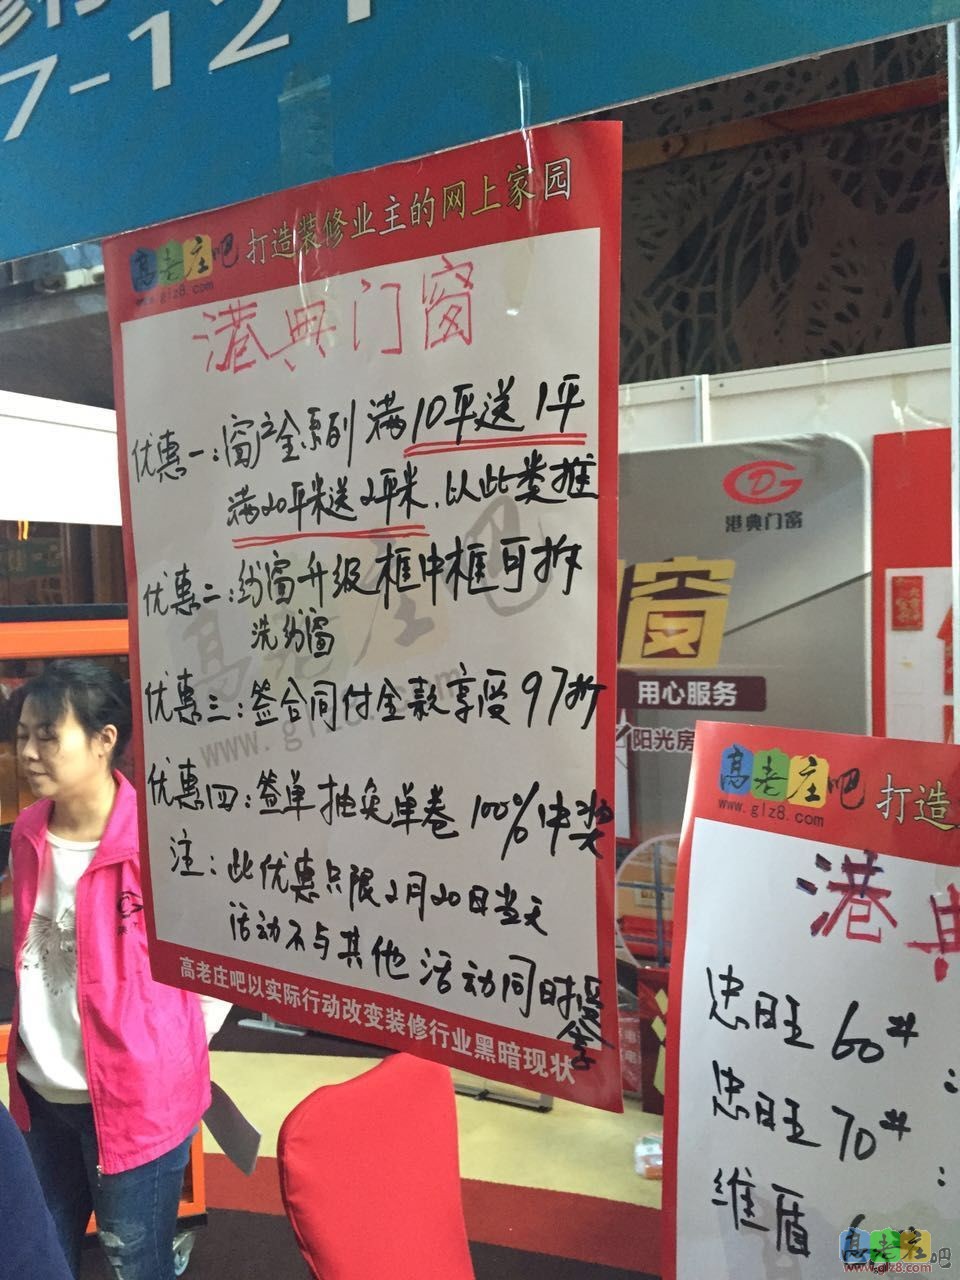 7-121
高老庄吧 打造装修业主的网上家园
www.glz8.com
港典门窗
优惠一:窗户全系列 满10平送1平
满20平米送2平米.以此类推
优惠二:纱窗升级框中框可拆
洗纱窗
优惠三:签合同付全款享受97折
优惠四:签单抽免单卷 100%中奖
注:此优惠只限2月20日当天
活动不与其他活动同时享受
高老庄吧以实际行动改变装修行业黑暗现状
高老庄吧
www.glz8.com
港典门窗
窗
用心服务
阳光房
高老庄吧 打造
www.glz8.com
港典
忠旺 60#
:
忠旺 70#
:
维盾 6
高老庄吧
www.glz8.com